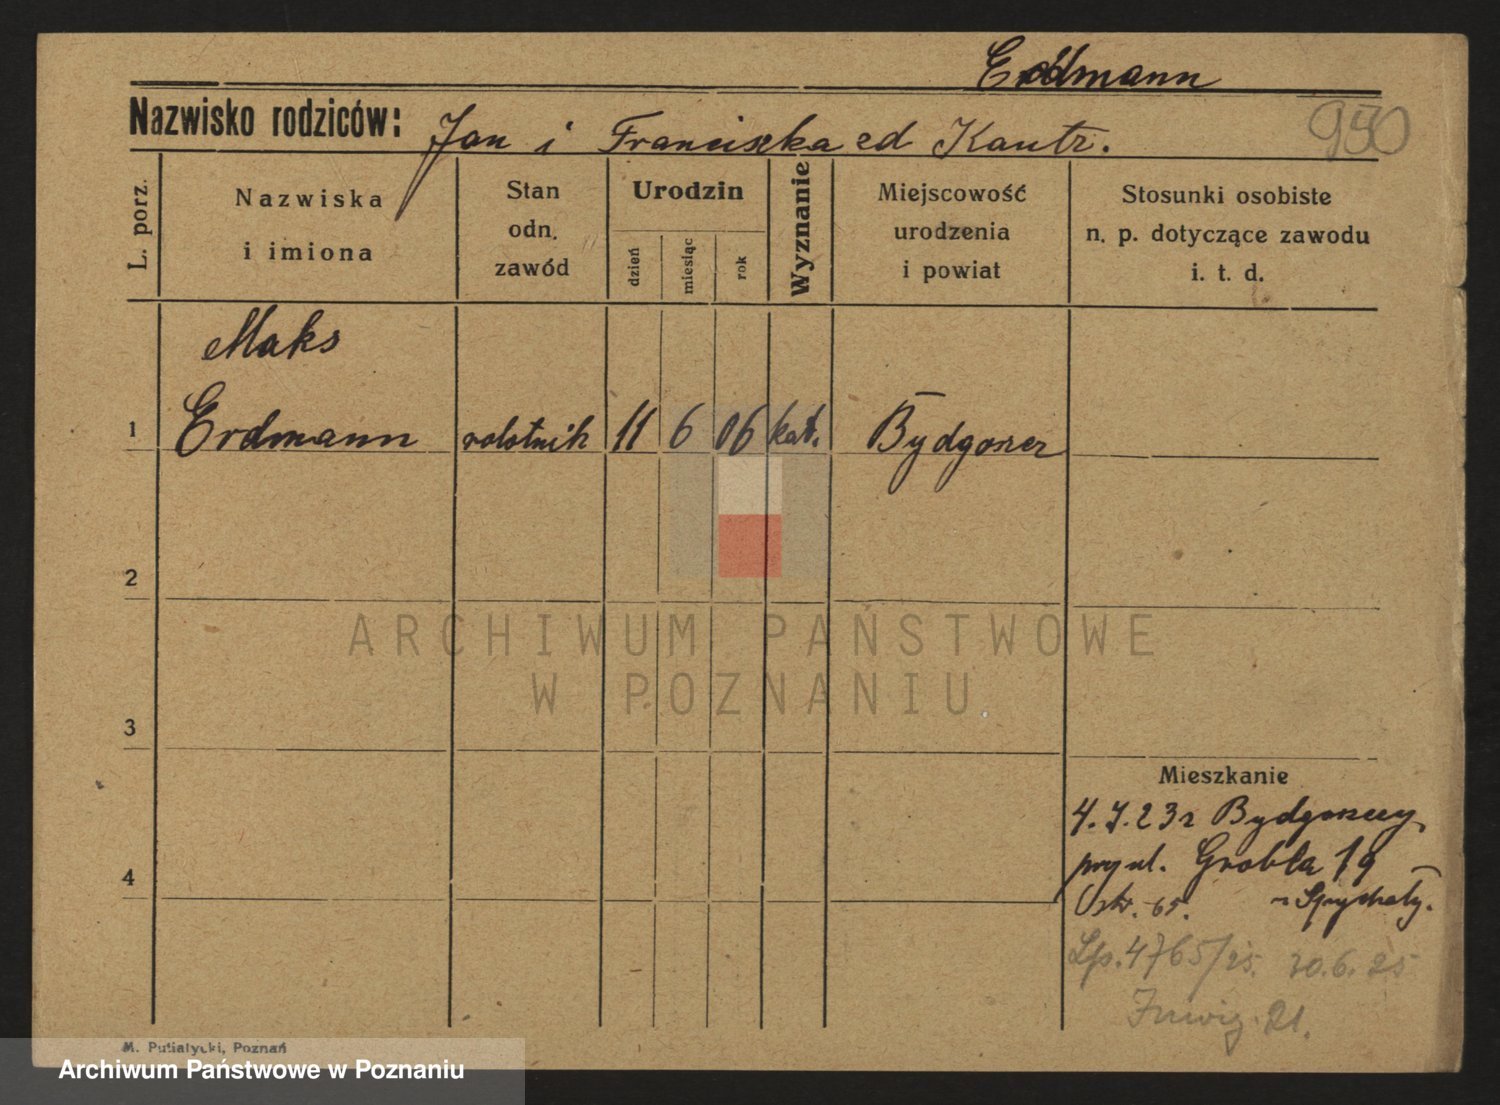 Erdmann
Nazwisko rodziców: Jan i Franciszka zd Kautz.
950
L. porz.
Nazwiska
i imiona
Stan
odn.
zawód
Urodzin
dzień
miesiąc
rok
Wyznanie
Miejscowość
urodzenia
i powiat
Stosunki osobiste
n. p. dotyczące zawodu
i. t. d.
Maks
1 Erdmann robotnik 11 6 06 kat. Bydgoszcz
2
ARCHIWUM PAŃSTWOWE
W POZNANIU
3
Mieszkanie
4. 7. 23 z Bydgoszczy
przy ul. Grobla 19
4
str. 65. u Spychały.
Lp. 4765/25. 20.6.25
21.
M. Putiatycki, Poznań
Archiwum Państwowe w Poznaniu